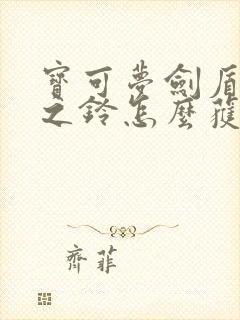 寶可夢劍盾
之鈴怎麼獲
齊菲